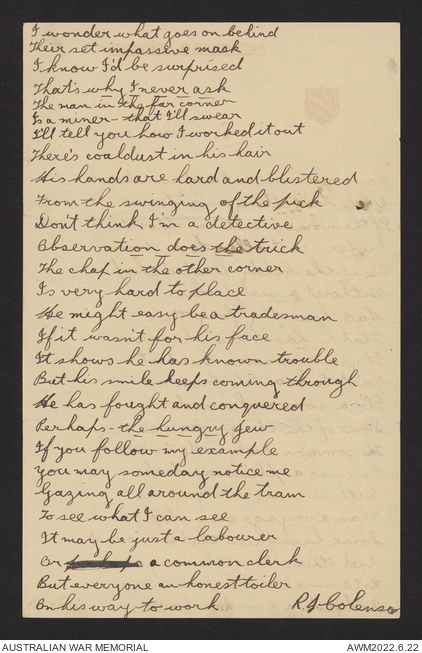 I wonder what goes on behind
Their set impassive mask
I know I'd be surprised
That's why I never ask
The man in the far corner
Is a miner - that I'll swear
I'll tell you how I worked it out
There's coaldust in his hair
His hands are hard and blistered
From the swinging of the pick
Don't think I'm a detective
Observation does the trick
The chap in the other corner
Is very hard to place
He might easy be a tradesman
If it wasn't for his face
It shows he has known trouble
But his smile keeps coming through
He has fought and conquered
Perhaps - the hungry few
If you follow my example
You may someday notice me
Gazing all around the tram
To see what I can see
It may be just a labourer
Or a common clerk
But everyone an honest toiler
On his way to work R J Colenso
AUSTRALIAN WAR MEMORIAL AWM2022.6.22